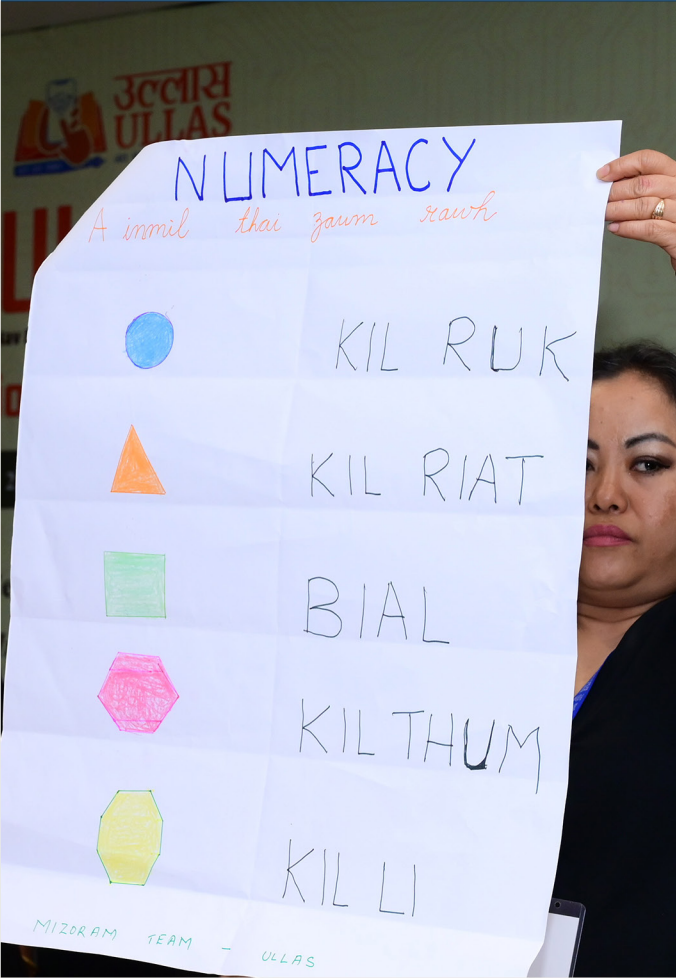 उल्लास
ULLAS
NUMERACY
A inmil thai zawm rawh
KIL RUK
KIL RIAT
BIAL
KIL THUM
KIL LI
MIZORAM TEAM - ULLAS